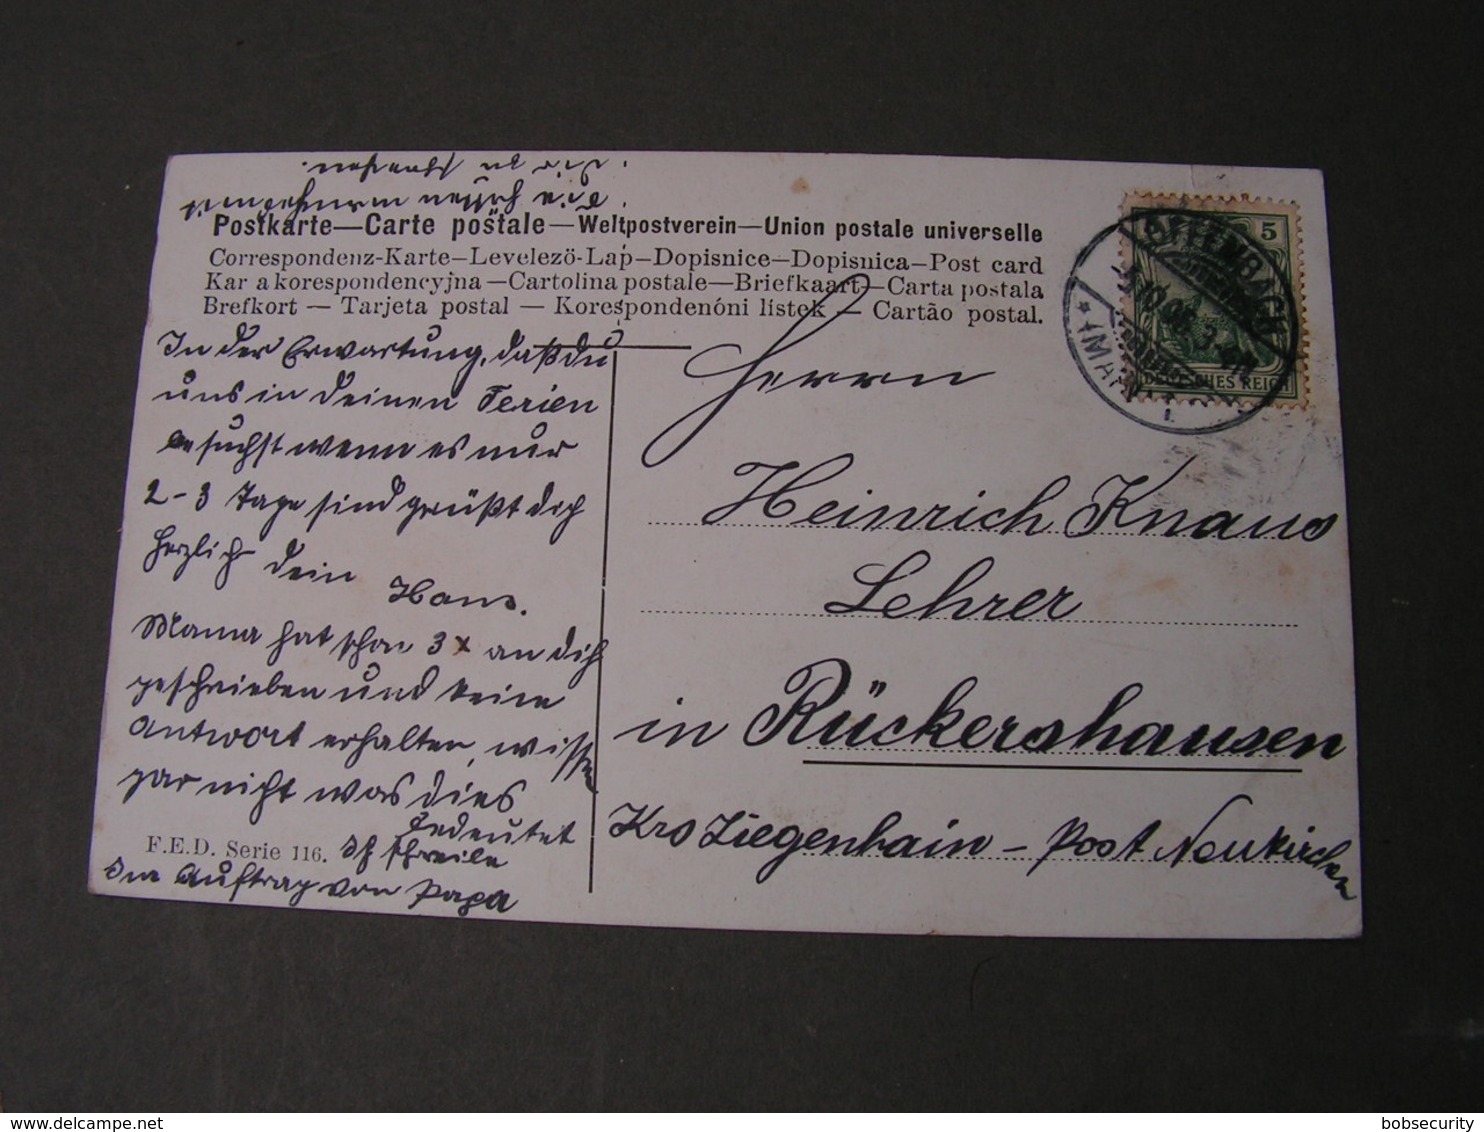 Postkarte—Carte postale—Weltpostverein—Union postale universelle
Correspondenz-Karte—Levelezö-Lap—Dopisnice—Dopisnica—Post card
Kar a korespondencyjna—Cartolina postale—Briefkaart—Carta postala
Brefkort — Tarjeta postal — Korespondenóni listek — Cartão postal.
In der Erwartung, daß du
uns in deinen Ferien
besuchst wenn es nur
2-3 Tage sind grüßt dich
herzlich dein
Hans.
Mama hat schon 3x an dich
geschrieben und keine
Antwort erhalten, wissen
gar nicht was dies
bedeutet
Ich schreibe
Im Auftrag von Papa
F.E.D. Serie 116.
Herrn
Heinrich Knaus
Lehrer
in Rückershausen
Krs Ziegenhain - Post Neukirchen
5
DEUTSCHES REICH
OFFENBACH
* (MAIN)
1.